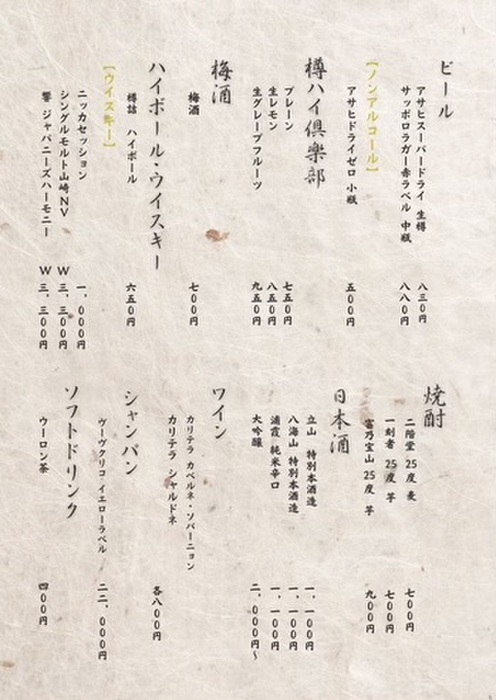 ビール
アサヒスーパードライ 生樽 八三〇円
サッポロラガー赤ラベル 中瓶 八八〇円
【ノンアルコール】
アサヒドライゼロ 小瓶 五〇〇円
樽ハイ倶楽部
プレーン 七五〇円
生レモン 八五〇円
生グレープフルーツ 九五〇円
梅酒
梅酒 七〇〇円
ハイボール・ウイスキー
樽詰 ハイボール 六五〇円
【ウイスキー】
ニッカセッション 一、〇〇〇円
シングルモルト山崎NV W 三、三〇〇円
響 ジャパニーズハーモニー W 三、三〇〇円
焼酎
二階堂 25度 麦 七〇〇円
一刻者 25度 芋 七〇〇円
富乃宝山 25度 芋 九〇〇円
日本酒
立山 特別本醸造 一、一〇〇円
八海山 特別本醸造 一、一〇〇円
浦霞 純米辛口 一、一〇〇円
大吟醸 二、〇〇〇円〜
ワイン
カリテラ カベルネ・ソバーニョン
カリテラ シャルドネ 各八〇〇円
シャンパン
ヴーヴクリコ イエローラベル 二二、〇〇〇円
ソフトドリンク
ウーロン茶 四〇〇円